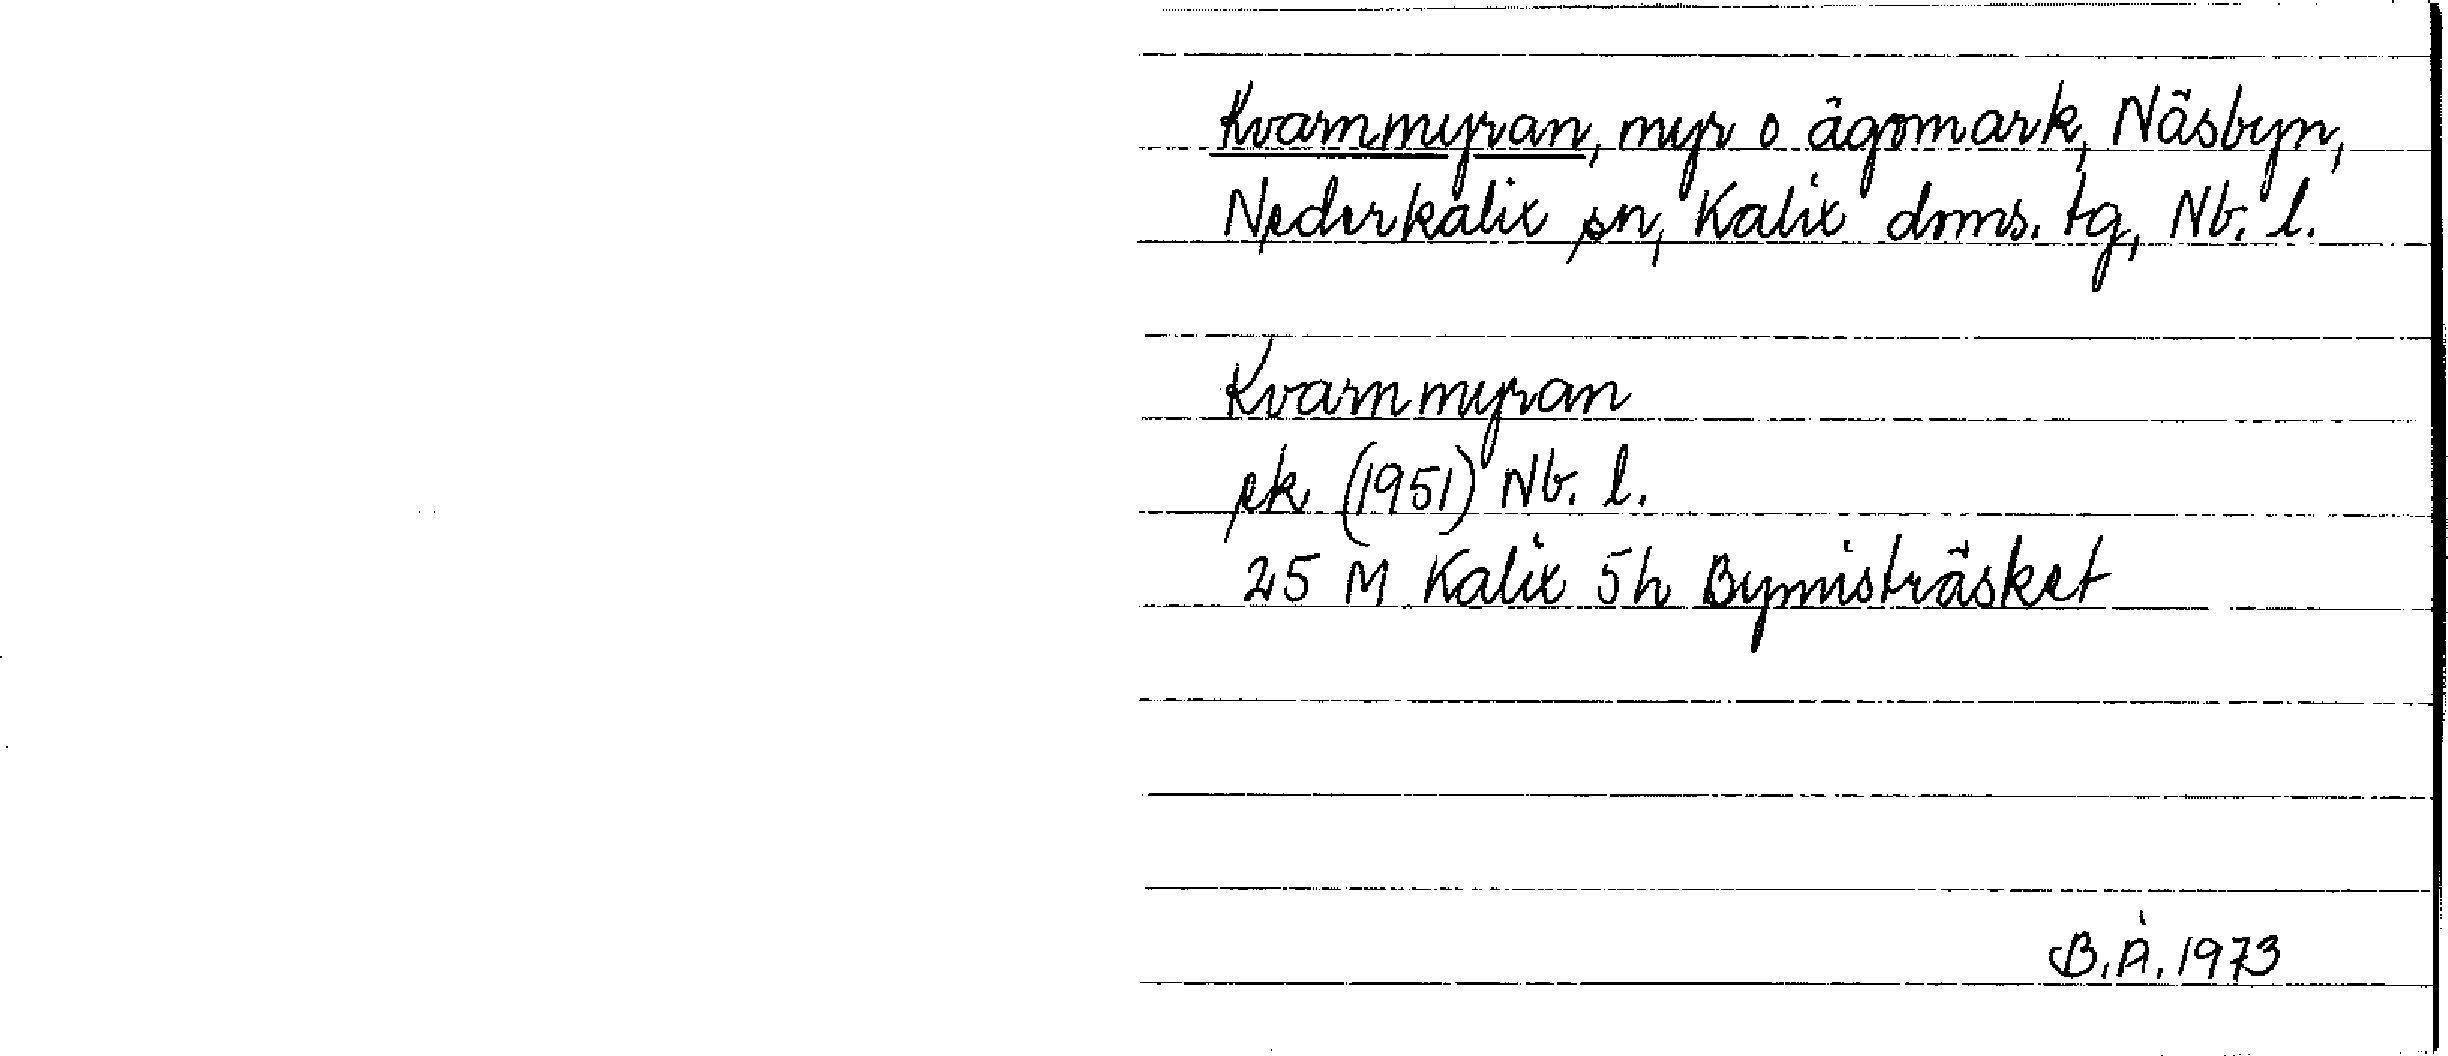 Kvarnmyran, myr o ägomark, Näsbyn,
Nederkalix sn, Kalix doms. tg, Nb. l.
Kvarnmyran
ek (1951) Nb. l.
25 M Kalix 5h Bymisträsket
B.Å. 1973